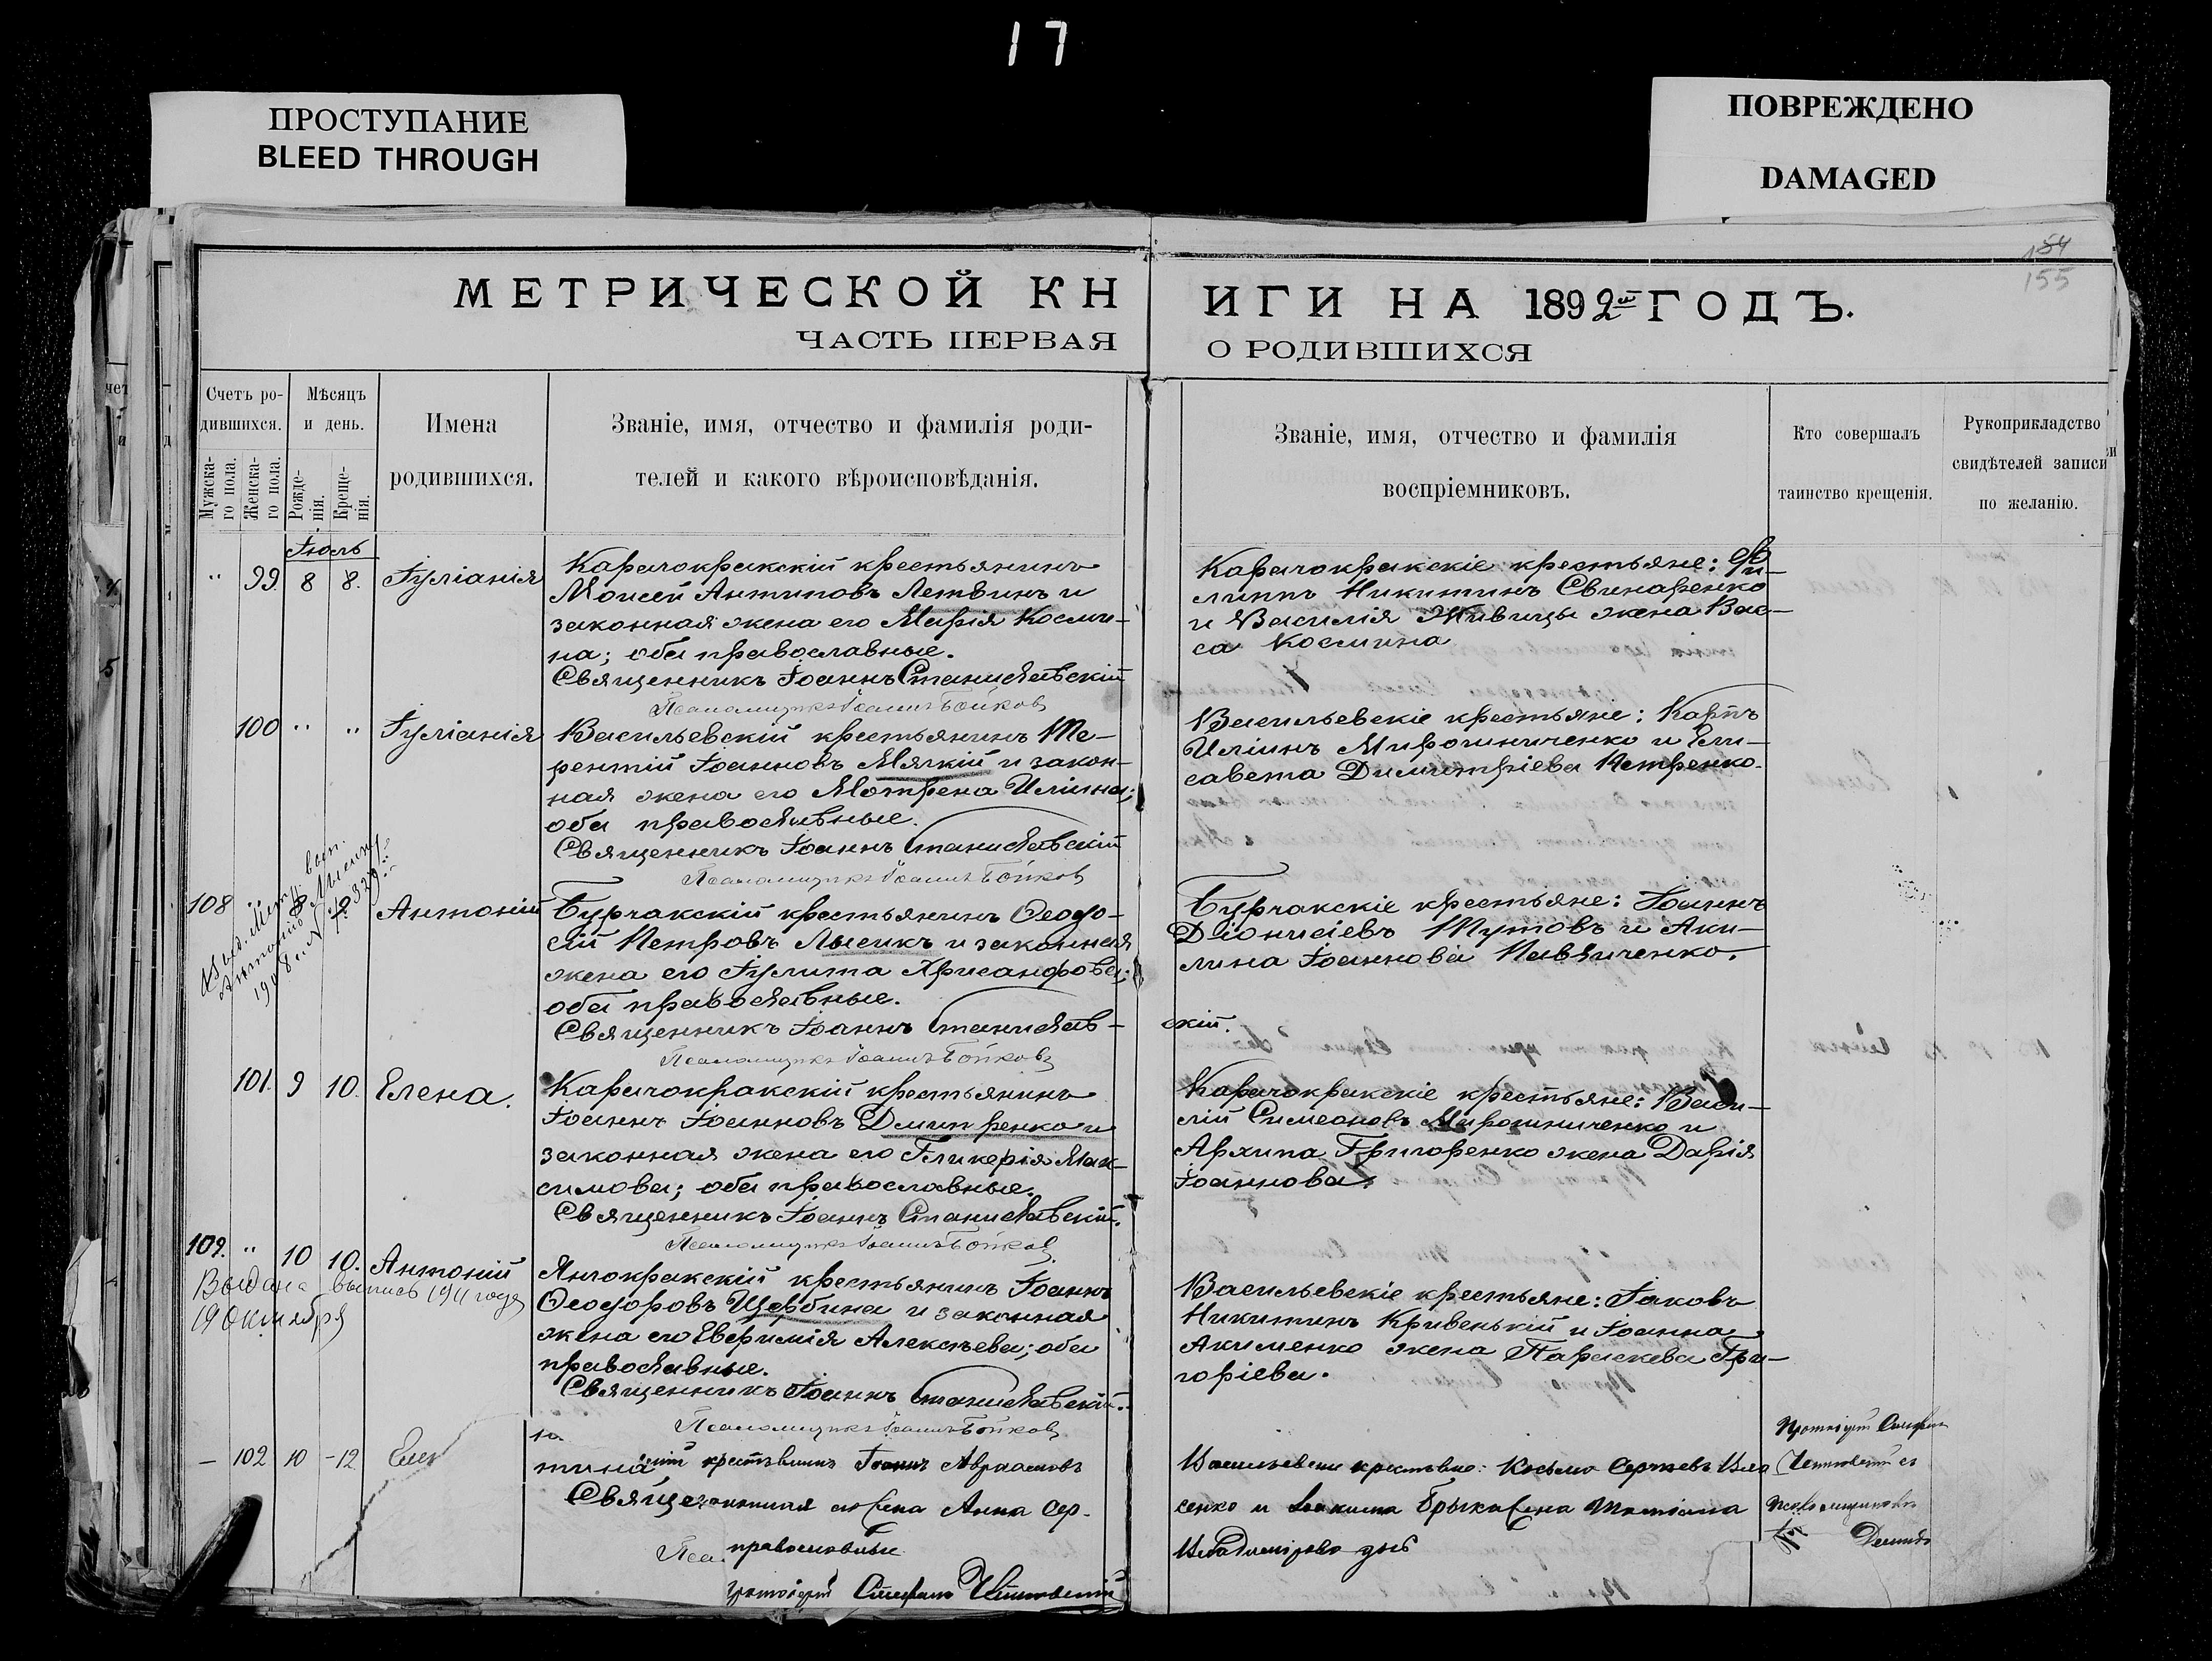 17
ПРОСТУПАНИЕ
BLEED THROUGH
ПОВРЕЖДЕНО
DAMAGED
154
155
МЕТРИЧЕСКОЙ КН
ЧАСТЬ ПЕРВАЯ
ИГИ НА 1892й ГОДЪ.
О РОДИВШИХСЯ
Счетъ ро-
дившихся.
Мужска-
го пола.
Женска-
го пола.
Мѣсяцъ
и день.
Рожде-
нія.
Креще-
нія.
Имена
родившихся.
Званіе, имя, отчество и фамилія роди-
телей и какого вѣроисповѣданія.
Званіе, имя, отчество и фамилія
воспріемниковъ.
Кто совершалъ
таинство крещенія.
Рукоприкладство
свидѣтелей записи
по желанію.
Іюль
" 99 8 8. Іуліанія
Карачокракскій крестьянинъ
Моисей Антиповъ Летвинъ и
законная жена его Марія Косми-
на; оба православные.
Священникъ Іоаннъ Станиславскій
Псаломщикъ Іоаннъ Бойковъ
Карачокракскіе крестьяне: Фи-
липпъ Никитинъ Свинаренко
и Василія Живицы жена Вас-
са Космина
100 " " Іуліанія
Васильевскій крестьянинъ Те-
рентій Іоанновъ Мягкій и закон-
ная жена его Мотрена Иліина;
оба православные.
Священникъ Іоаннъ Станиславскій
Псаломщикъ Іоаннъ Бойковъ
Васильевскіе крестьяне: Карпъ
Иліинъ Мирошниченко и Ели-
савета Димитріева Петренко.
108 " Антоній
Выд. Метр. вып.
Антонію Лысику
1908 г. №
Бурчакскій крестьянинъ Ѳеодо-
сій Петровъ Лысикъ и законная
жена его Іулита Хрисанфова;
оба православные.
Священникъ Іоаннъ Станислав-
скій.
Псаломщикъ Іоаннъ Бойковъ
Бурчакскіе крестьяне: Іоаннъ
Діонисіевъ Тутовъ и Аки-
лина Іоаннова Павличенко.
101. 9 10. Елена.
Карачокракскій крестьянинъ
Іоаннъ Іоанновъ Дмитренко и
законная жена его Гликерія Мак-
симова; оба православные.
Священникъ Іоаннъ Станиславскій.
Псаломщикъ Іоаннъ Бойковъ
Карачокракскіе крестьяне: Васи-
лій Симеоновъ Мирошниченко и
Архипа Григоренко жена Дарія
Іоаннова.
109. " 10 10. Антоній
Выдана выпись 1911 года
19 Октября
Янчокракскій крестьянинъ Іоаннъ
Ѳеодоровъ Щербина и законная
жена его Евфимія Алексѣева; оба
православные.
Священникъ Іоаннъ Станиславскій.
Псаломщикъ Іоаннъ Бойковъ
Васильевскіе крестьяне: Іаковъ
Никитинъ Кривенькій и Іоанна
Акименко жена Параскева Гри-
горіева.
– 102 10 -12 Еле
тина
крестьянинъ Іоаннъ Авраамовъ
Свяще
законная его жена Анна Сер.
Пса
православные
протоіерей Стефанъ
Васильевскіе крестьяне: Косьма Сергѣевъ Вла
сенко и Іоакима Брыка жена Татіана
Владимірова
Протоіерей Стефанъ
съ
псаломщикомъ